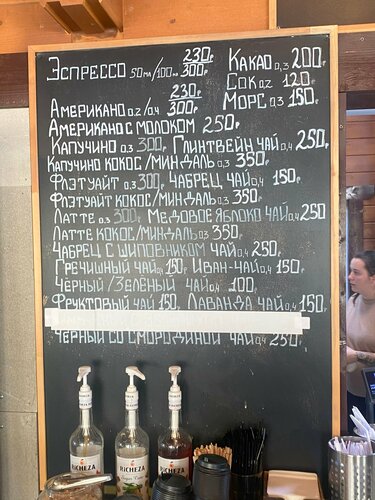 Эспрессо 50мл/100мл 230/300р Какао 0,3 200р
Сок 0,2 120р
Американо 0,2/0,4 230/300р Морс 0,3 150р
Американо с молоком 250р
Капучино 0,3 300р Глинтвейн чай 0,4 250р
Капучино кокос/миндаль 0,3 350р
Флэтуайт 0,3 300р Чабрец чай 0,4 150р
Флэтуайт кокос/миндаль 0,3 350р
Латте 0,3 300р Медовое яблоко чай 0,4 250
Латте кокос/миндаль 0,3 350р
Чабрец с шиповником чай 0,4 250р
Гречишный чай 0,4 150р Иван-чай 0,4 150р
Чёрный/Зелёный чай 0,4 100р
Фруктовый чай 150р Лаванда чай 0,4 150р
Чёрный со смородиной чай 0,4 250р
RICHEZA
RICHEZA
RICHEZA